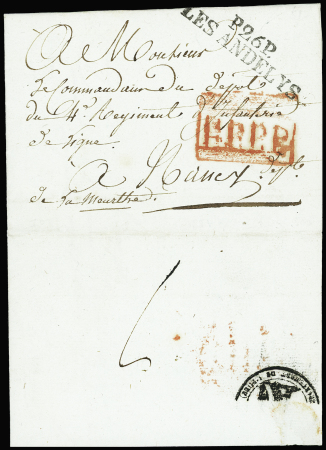 P.26.P.
LES ANDELYS
A Monsieur
Le Commandant du Depot
du 4e Regiment d'Infanterie
de Ligne.
P.P.P.P.
à Nancy Dept
de La Meurthe.